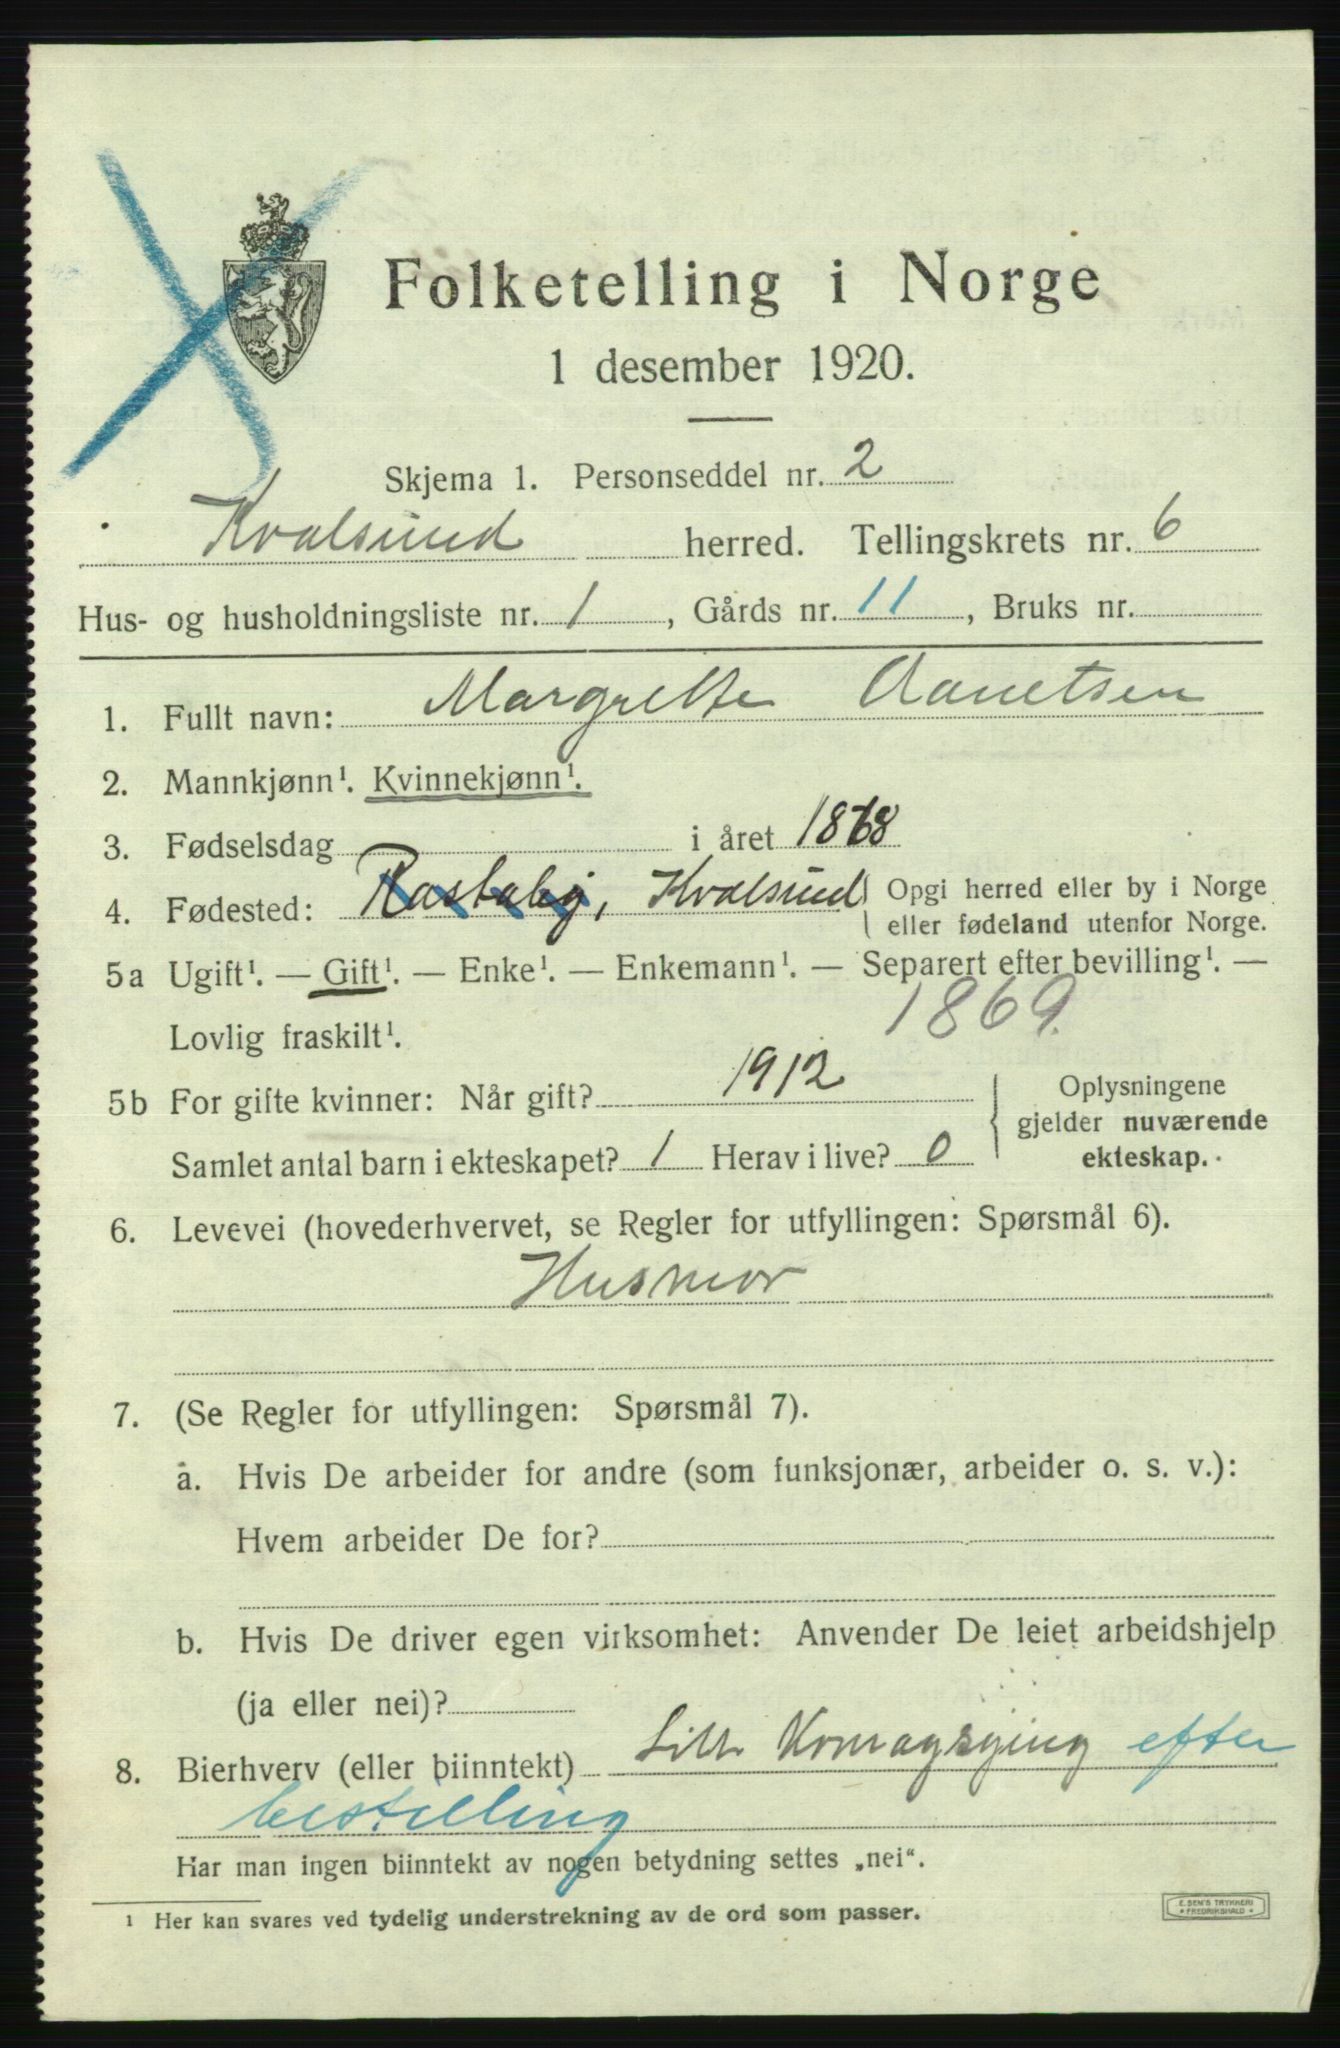 Folketelling i Norge
1 desember 1920.
Skjema 1. Personseddel nr. 2
Kvalsund herred. Tellingskrets nr. 6
Hus- og husholdningsliste nr. 1, Gårds nr. 11, Bruks nr.
1. Fullt navn: Margrethe Aanetsen
2. Mannkjønn¹. Kvinnekjønn¹.
3. Fødselsdag i året 1868
4. Fødested: Rastaby, Kvalsund Opgi herred eller by i Norge
eller fødeland utenfor Norge.
5a Ugift¹. — Gift¹. — Enke¹. — Enkemann¹. — Separert efter bevilling¹. —
Lovlig fraskilt¹. 1869.
5b For gifte kvinner: Når gift? 1912
Samlet antal barn i ekteskapet? 1 Herav i live? 0
Oplysningene
gjelder nuværende
ekteskap.
6. Levevei (hovederhvervet, se Regler for utfyllingen: Spørsmål 6).
Husmor
7. (Se Regler for utfyllingen: Spørsmål 7).
a. Hvis De arbeider for andre (som funksjonær, arbeider o. s. v.):
Hvem arbeider De for?
b. Hvis De driver egen virksomhet: Anvender De leiet arbeidshjelp
(ja eller nei)?
8. Bierhverv (eller biinntekt) Litt Komagsying efter
bestilling
Har man ingen biinntekt av nogen betydning settes „nei".
¹ Her kan svares ved tydelig understrekning av de ord som passer.
E. SEM'S TRYKKERI
FREDRIKSHALD